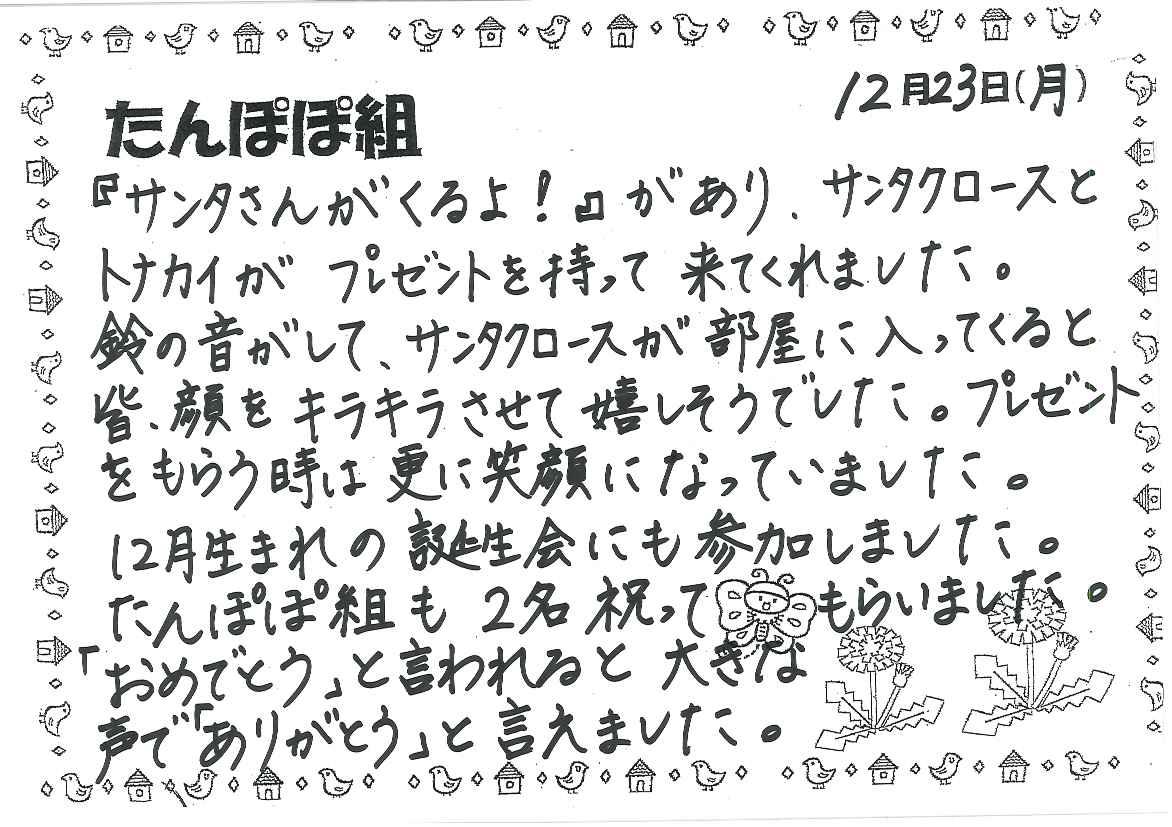 12月23日(月)
たんぽぽ組
『サンタさんがくるよ!』があり、サンタクロースと
トナカイが プレゼントを持って 来てくれました。
鈴の音がして、サンタクロースが部屋に入ってくると
皆、顔をキラキラさせて嬉しそうでした。プレゼント
をもらう時は更に笑顔になっていました。
12月生まれの誕生会にも参加しました。
たんぽぽ組も2名祝ってもらいました。
「おめでとう」と言われると大きな
声で「ありがとう」と言えました。